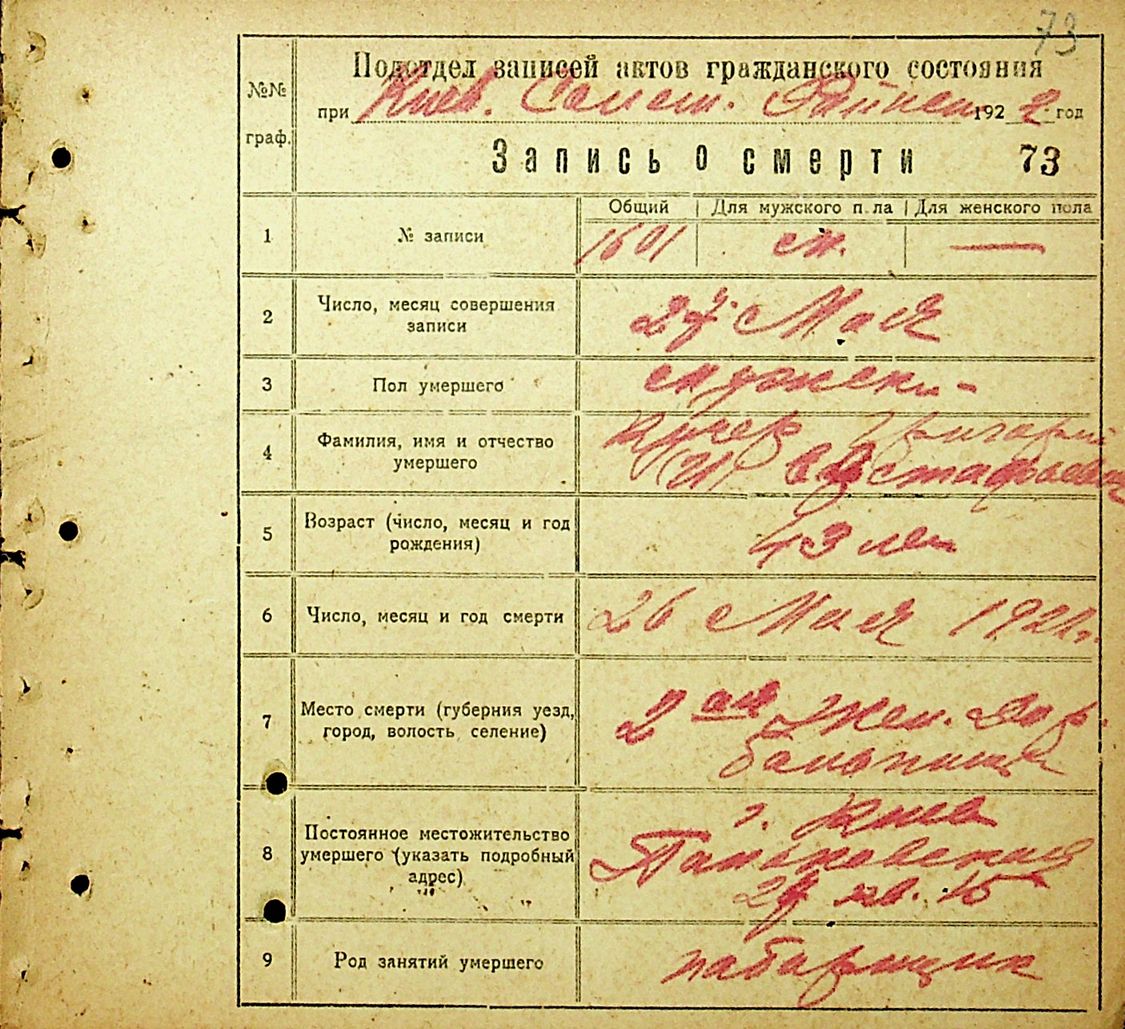 73
Подотдел записей актов гражданского состояния
№№ граф.
при Киев. 192 2 год
Запись о смерти 73
Общий Для мужского пола Для женского пола
1 № записи 1601 м. —
2 Число, месяц совершения
записи
27 Мая
3 Пол умершего мужск
4 Фамилия, имя и отчество
умершего
Кучер Григорий
Евстафиевич
5 Возраст (число, месяц и год
рождения)
43 лет
6 Число, месяц и год смерти 26 Мая 1922г.
7 Место смерти (губерния уезд,
город, волость селение)
2ая Жел. Дор.
больница
8 Постоянное местожительство
умершего (указать подробный
адрес)
г. Киев
Паньковская
кв. 15
9 Род занятий умершего наборщик